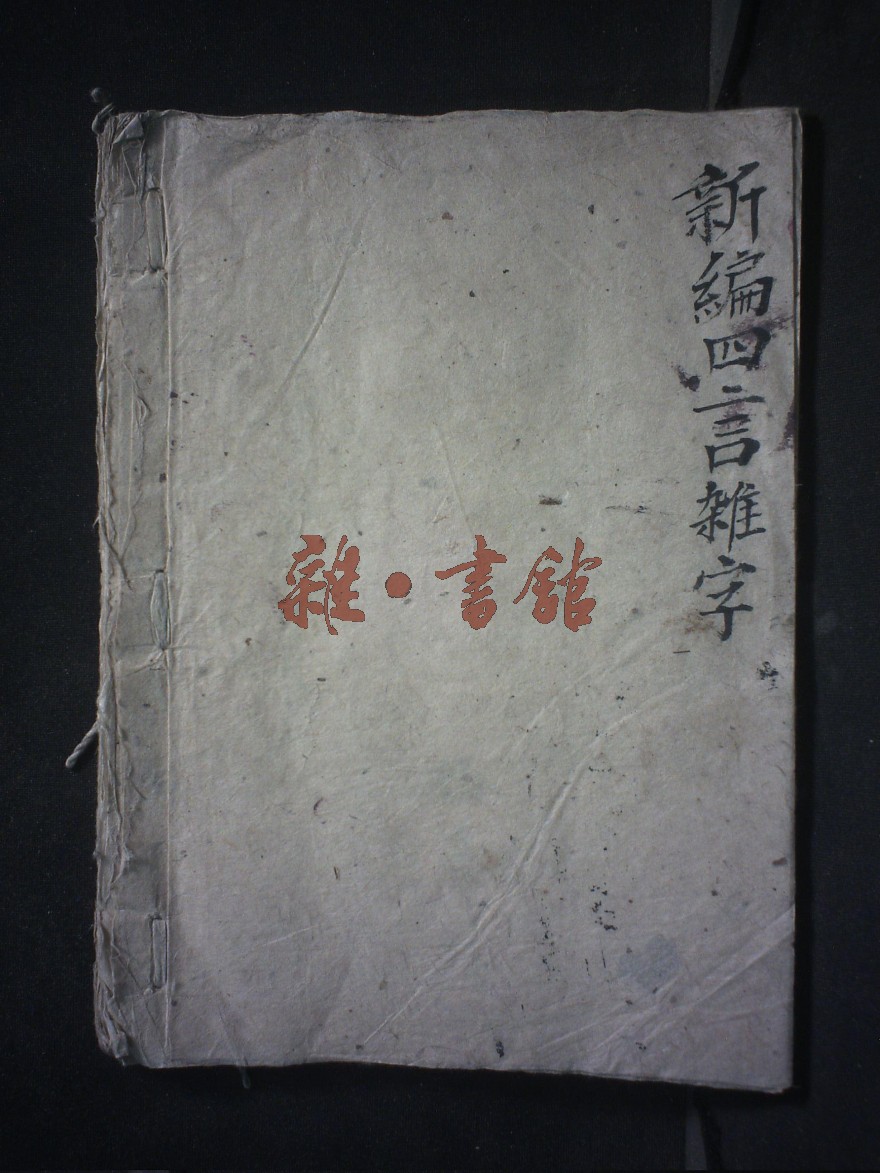 新編四言雑字
雜·書館